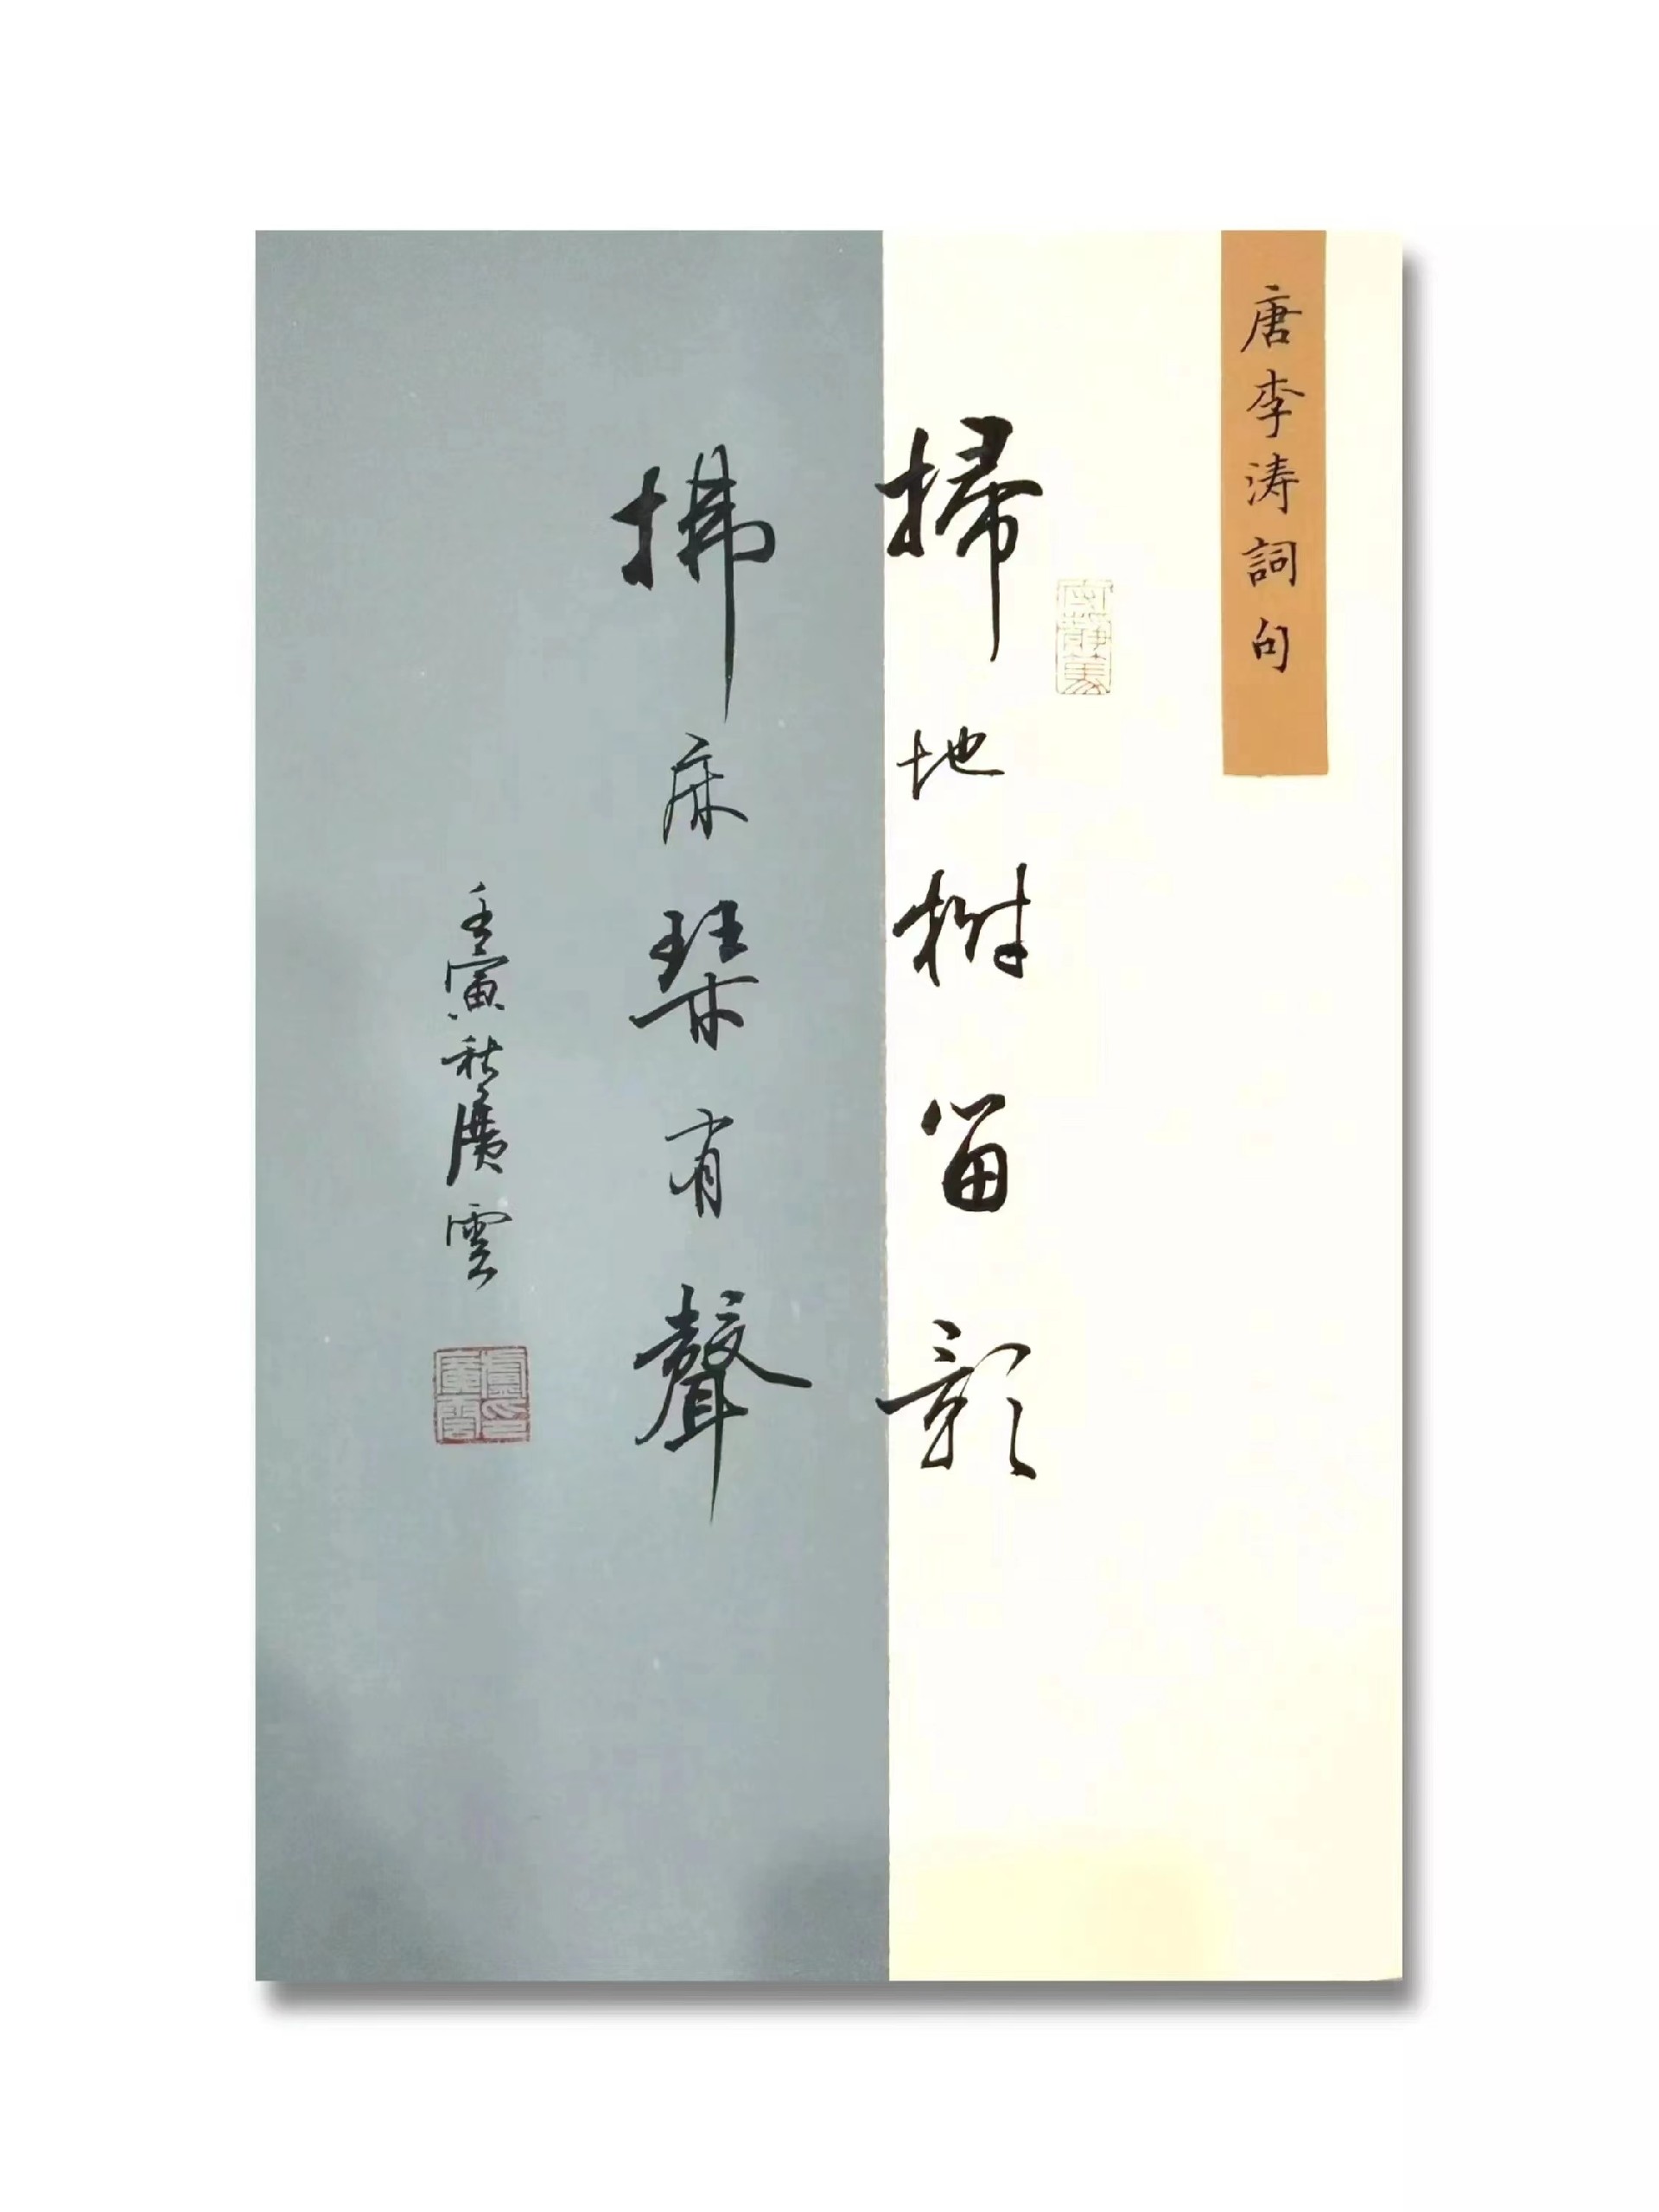 唐李涛詞句
掃地樹留影
拂床琴有聲
壬寅秋廣雲